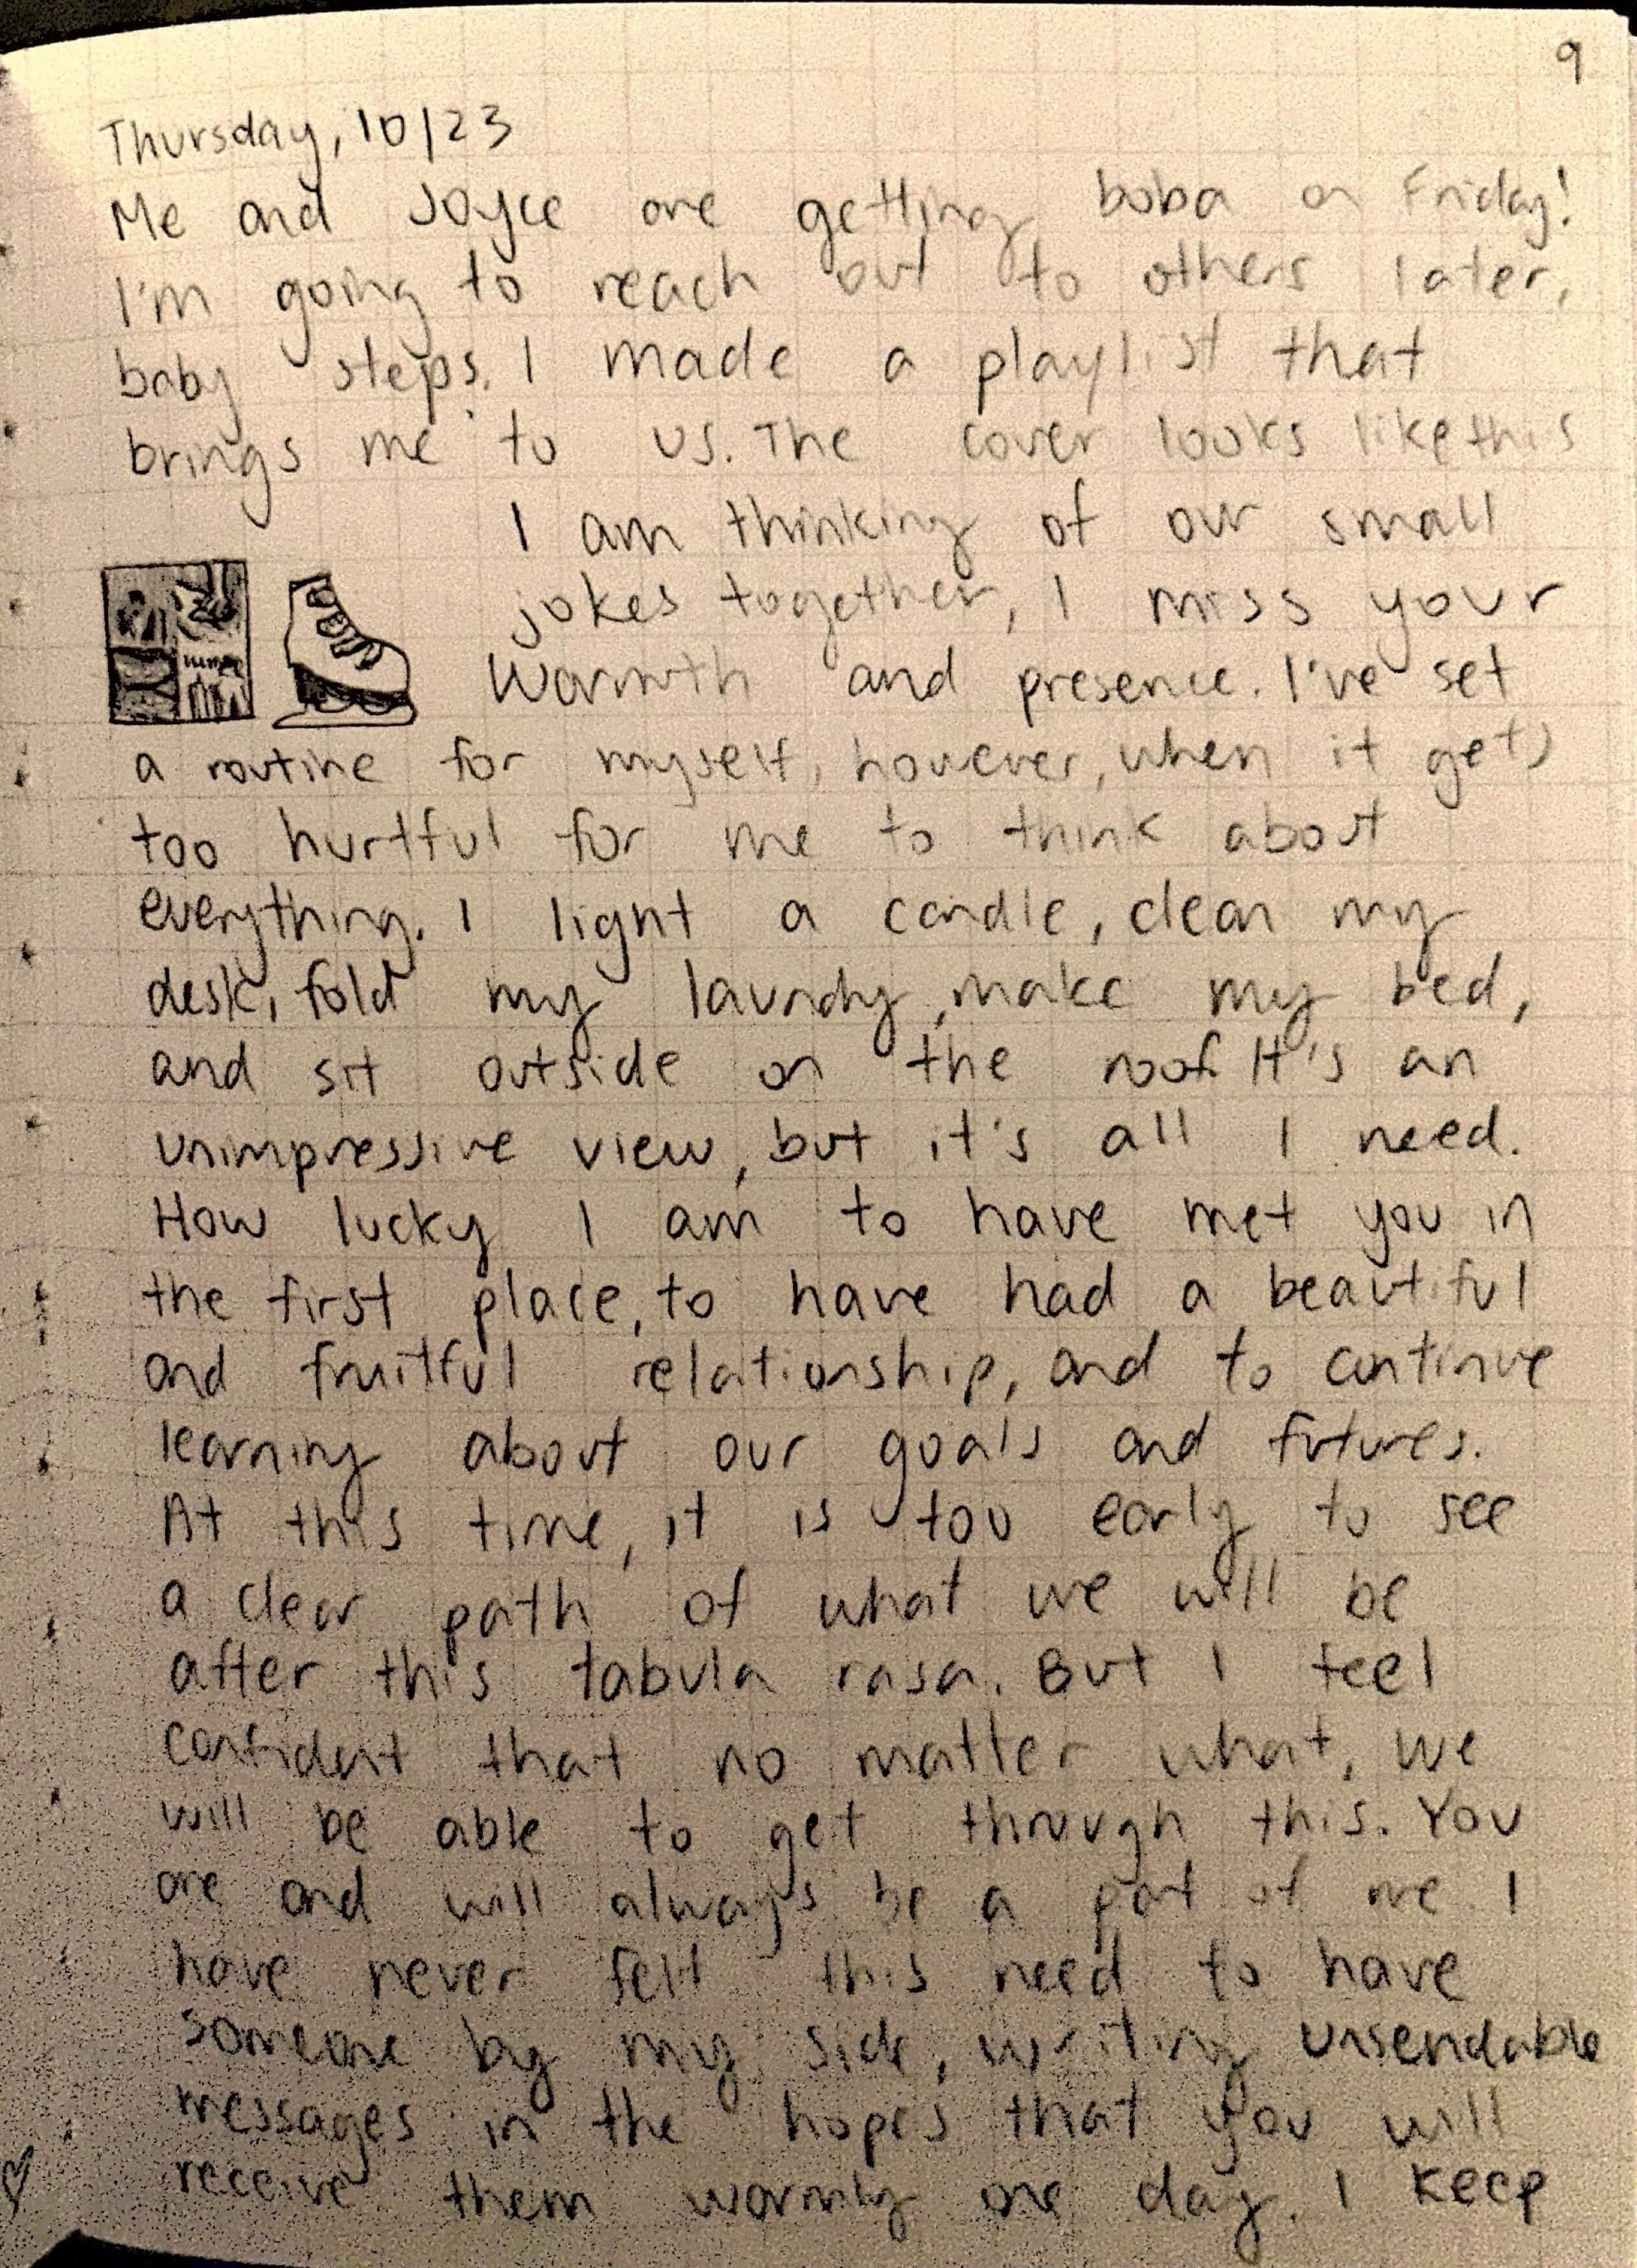 9
Thursday, 10/23
Me and Joyce are getting boba on Friday!
I'm going to reach out to others later,
baby steps. I made a playlist that
brings me to us. The cover looks like this
I am thinking of our small
jokes together, I miss your
warmth and presence. I've set
a routine for myself, however, when it gets
too hurtful for me to think about
everything. I light a candle, clean my
desk, fold my laundry, make my bed,
and sit outside on the roof. It's an
unimpressive view, but it's all I need.
How lucky I am to have met you in
the first place, to have had a beautiful
and fruitful relationship, and to continue
learning about our goals and futures.
At this time, it is too early to see
a clear path of what we will be
after this tabula rasa. But I feel
confident that no matter what, we
will be able to get through this. You
are and will always be a part of me I
have never felt this need to have
someone by my side, writing unsendable
messages in the hopes that you will
receive them warmly one day. I keep